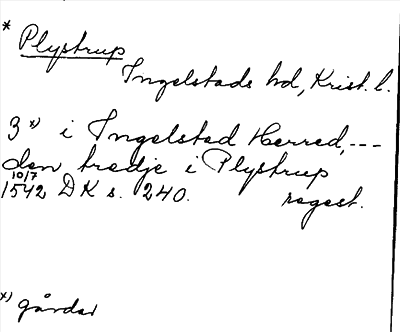 * Plystrup
Ingelstads hd, Krist. l.
3 x) i Ingelstad Herred, ---
den tredje i Plystrup
10/7
1542 DK s. 240. regest.
x) gårdar